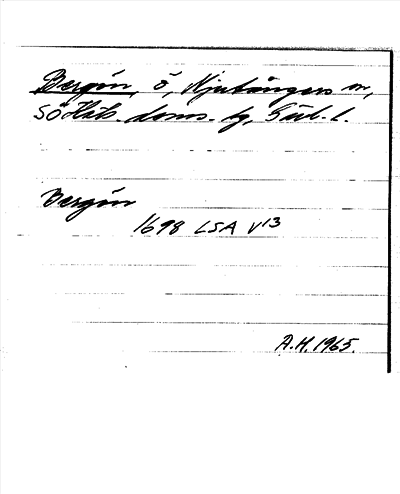 Bergön, ö, Njutångers sn,
SöHäls. doms. tg, Gävl. l.
Bergön
1698 LSA V13
A.H. 1965.